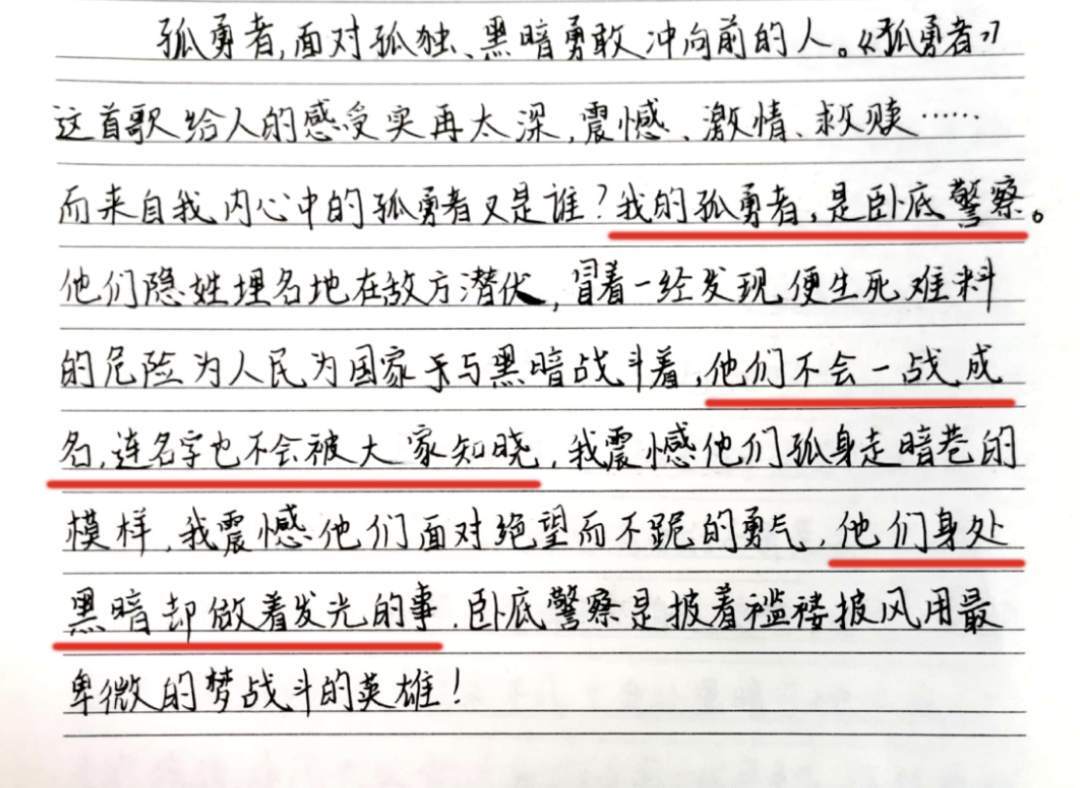 孤勇者,面对孤独、黑暗勇敢冲向前的人。《孤勇者》
这首歌给人的感受实再太深,震憾、激情、救赎……
而来自我内心中的孤勇者又是谁?我的孤勇者,是卧底警察。
他们隐姓埋名地在敌方潜伏,冒着一经发现便生死难料
的危险为人民为国家与黑暗战斗着,他们不会一战成
名,连名字也不会被大家知晓,我震憾他们孤身走暗巷的
模样,我震憾他们面对绝望而不跪的勇气,他们身处
黑暗却做着发光的事.卧底警察是披着褴褛披风用最
卑微的梦战斗的英雄!